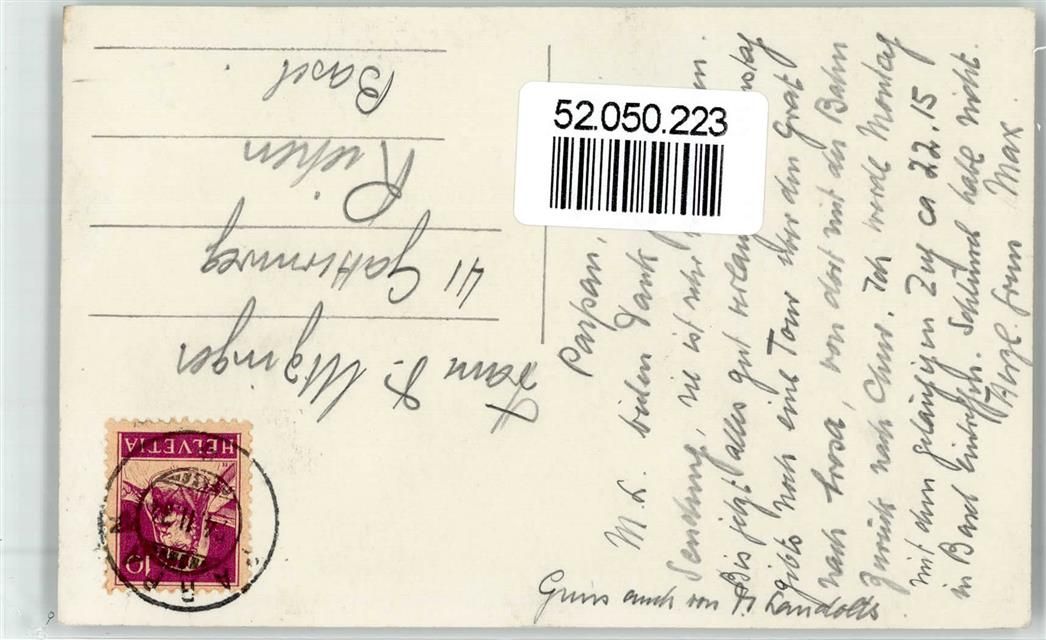 52.050.223
Parpan,
M. L. vielen Dank
Sendung, sie ist sehr
Bis jetzt alles gut verlau
gibts noch eine Tour über den Grat
nach Arosa, von dort mit der Bahn
zurück nach Chur. Ich werde Montag
mit dem gelaufigen Zug ca 22.15
in Basel eintreffen. Schlüssel habe nicht.
Herzl. Max
Gruss auch von Landolts
Frau
41
Riehen
Basel
HELVETIA
10